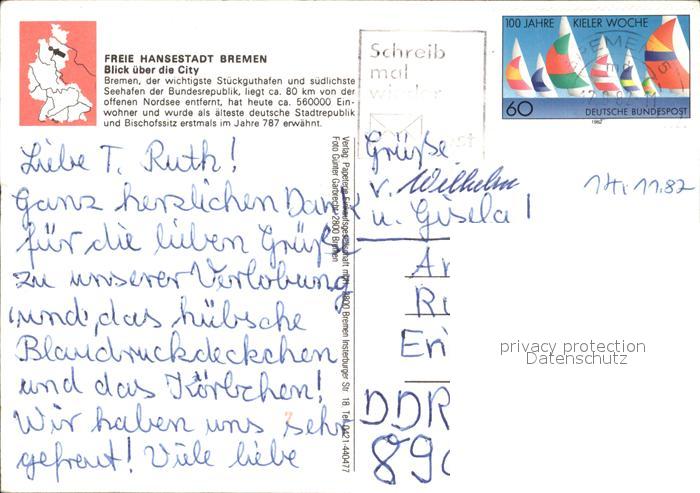 FREIE HANSESTADT BREMEN
Blick über die City
Bremen, der wichtigste Stückguthafen und südlichste
Seehafen der Bundesrepublik, liegt ca. 80 km von der
offenen Nordsee entfernt, hat heute ca. 560000 Ein-
wohner und wurde als älteste deutsche Stadtrepublik
und Bischofssitz erstmals im Jahre 787 erwähnt.
Schreib
mal
wieder
Post
100 JAHRE KIELER WOCHE
60
DEUTSCHE BUNDESPOST
1982
Liebe T. Ruth!
Ganz herzlichen Dank
für die lieben Grüße
zu unserer Verlobung
und das hübsche
Blaudruckdeckchen
und das Körbchen!
Wir haben uns sehr
gefreut! Viele liebe
Grüße
v. Wilhelm
u. Gisela!
14.11.82
DDR
privacy protection
Datenschutz
Foto Günter Garbrecht, 2800 Bremen